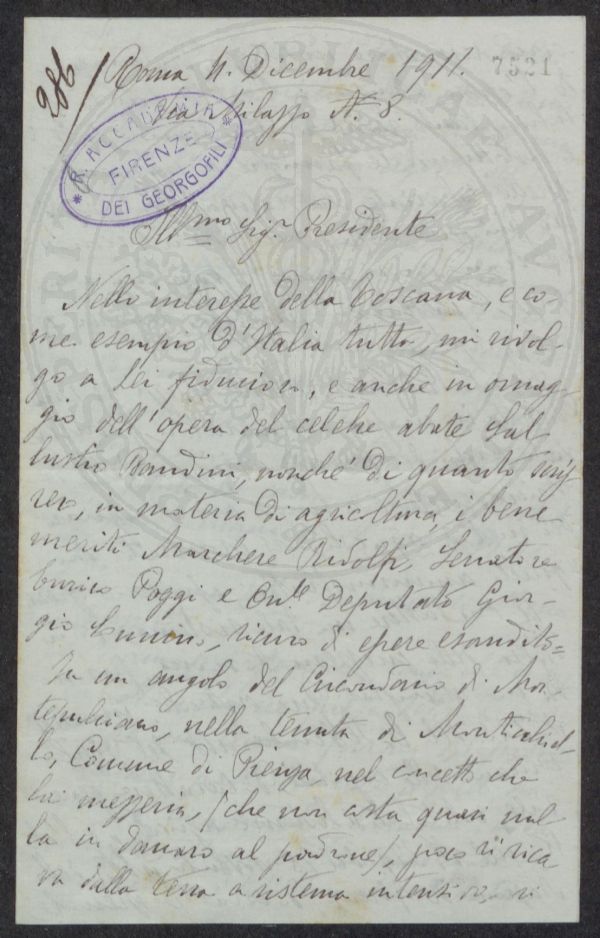 286
Roma 4. Dicembre 1911.
7521
Via Milazzo N. 8.
R. ACCADEMIA
FIRENZE
DEI GEORGOFILI
Ill.mo Sig.r Presidente
Nello interesse della Toscana, e co-
me esempio d'Italia tutta, mi rivol-
go a Lei fiducioso, e anche in omag-
gio dell'opera del celebre abate Sal
lustio Bandini, nonché di quanto scris
sero, in materia di agricoltura, i bene
meriti Marchese Ridolfi, Senatore
Enrico Poggi e On.le Deputato Gior-
gio Sonnino, sicuro di essere esaudito=
In un angolo del Circondario di Mon-
tepulciano, nella tenuta di Montichiel-
lo, Comune di Pienza, nel concetto che
la mezzeria, (che non costa quasi nul
la in danaro al padrone), poco si rica
va dalla terra a sistema intensivo, si